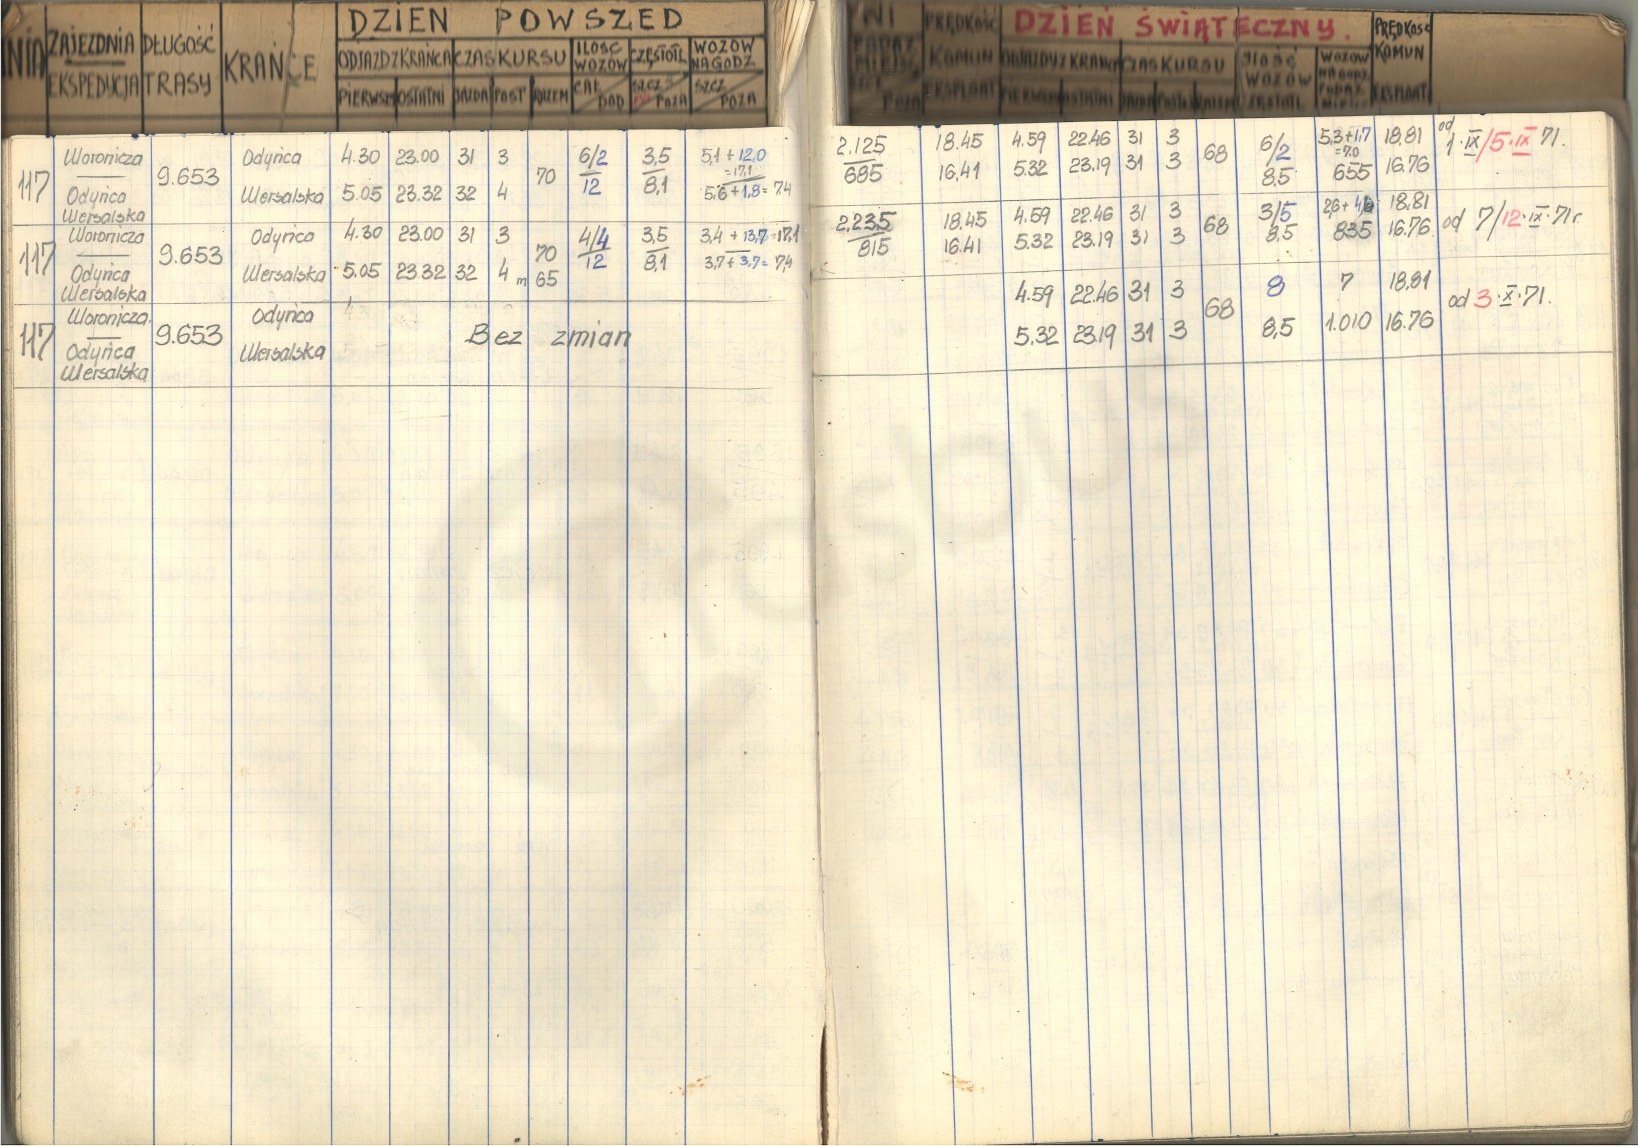 DZIEŃ POWSZED
ZAJEZDNIA DŁUGOŚĆ KRAŃCE ODJAZD Z KRAŃCA CZAS KURSU ILOŚĆ WOZÓW CZĘSTOTL WOZÓW NA GODZ
EKSPEDYCJA TRASY PIERWSZ OSTATNI JAZDA POST RAZEM SZCZ POZA SZCZ POZA
PRĘDKOŚĆ KOMUN EKSPLOAT
DZIEŃ ŚWIĄTECZNY.
ODJAZDY Z KRAŃCA CZAS KURSU ILOŚĆ WOZÓW WOZÓW PRĘDKOŚĆ KOMUN
PIERWSZ OSTATNI JAZDA RAZEM EKSPLOAT
117 Woronicza 9.653 Odyńca 4.30 23.00 31 3 70 6/2 3,5 5,1 + 12,0 = 17,1
Odyńca Wersalska 5.05 23.32 32 4 12 8,1 5,6 + 1,8 = 7,4
Wersalska
2.125 18.45 4.59 22.46 31 3 68 6/2 5,3 + 1,7 = 7,0 18,81 od 1·IX/5·IX 71.
685 16.41 5.32 23.19 31 3 8,5 655 16.76
117 Woronicza 9.653 Odyńca 4.30 23.00 31 3 70 4/4 3,5 3,4 + 13,7 = 17,1
Odyńca Wersalska 5.05 23.32 32 4 m 65 12 8,1 3,7 + 3,7 = 7,4
Wersalska
2.235 18.45 4.59 22.46 31 3 68 3/5 18.81 od 7/12·IX·71r.
815 16.41 5.32 23.19 31 3 8,5 835 16.76
117 Woronicza 9.653 Odyńca Bez zmian
Odyńca Wersalska
Wersalska
4.59 22.46 31 3 68 8 7 18,81 od 3·X·71.
5.32 23.19 31 3 8,5 1.010 16.76